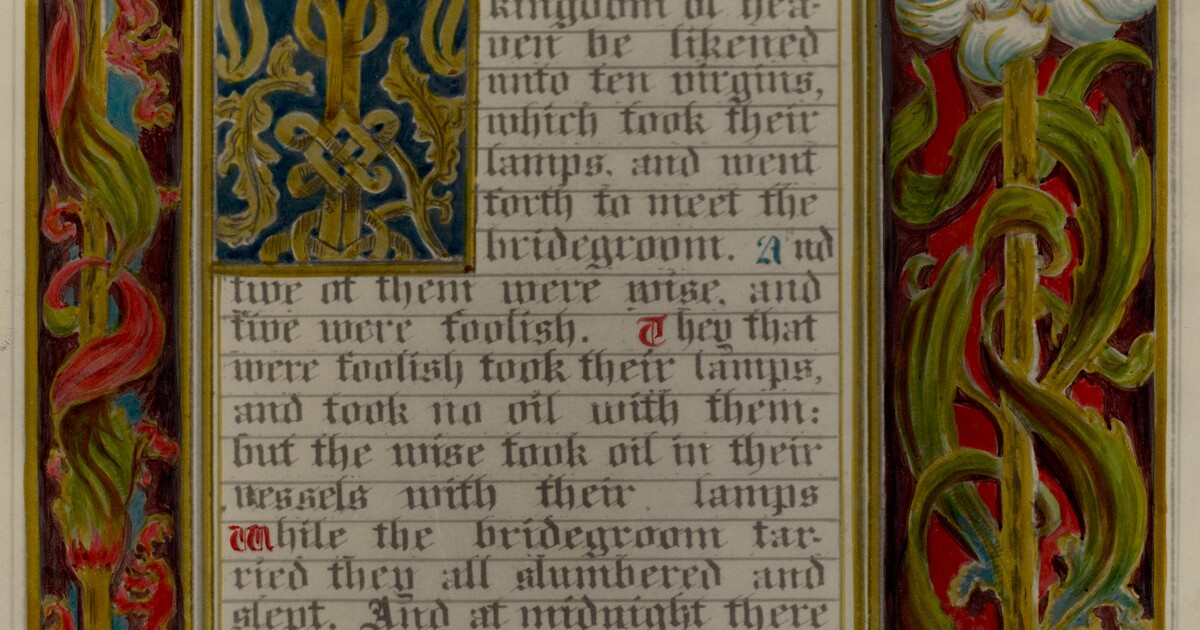 kingdom of hea-
ven be likened
unto ten virgins,
which took their
lamps, and went
forth to meet the
bridegroom. And
five of them were wise, and
five were foolish. They that
were foolish took their lamps,
and took no oil with them:
but the wise took oil in their
vessels with their lamps
While the bridegroom tar-
ried they all slumbered and
slept. And at midnight there